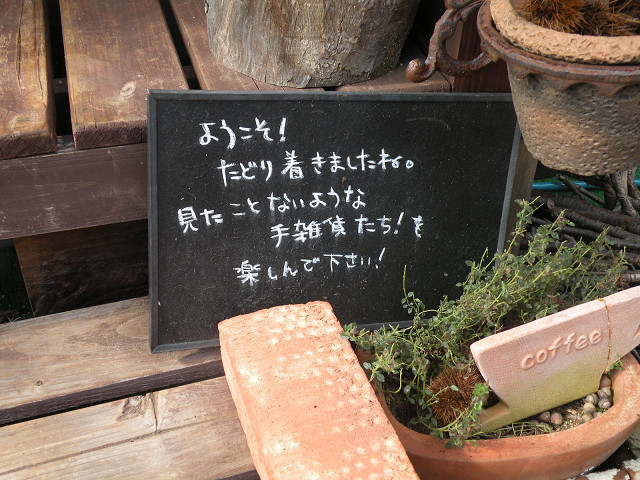 ようこそ!
たどり着きましたね。
見たことないような
手雑貨たち!を
楽しんで下さい!
coffee